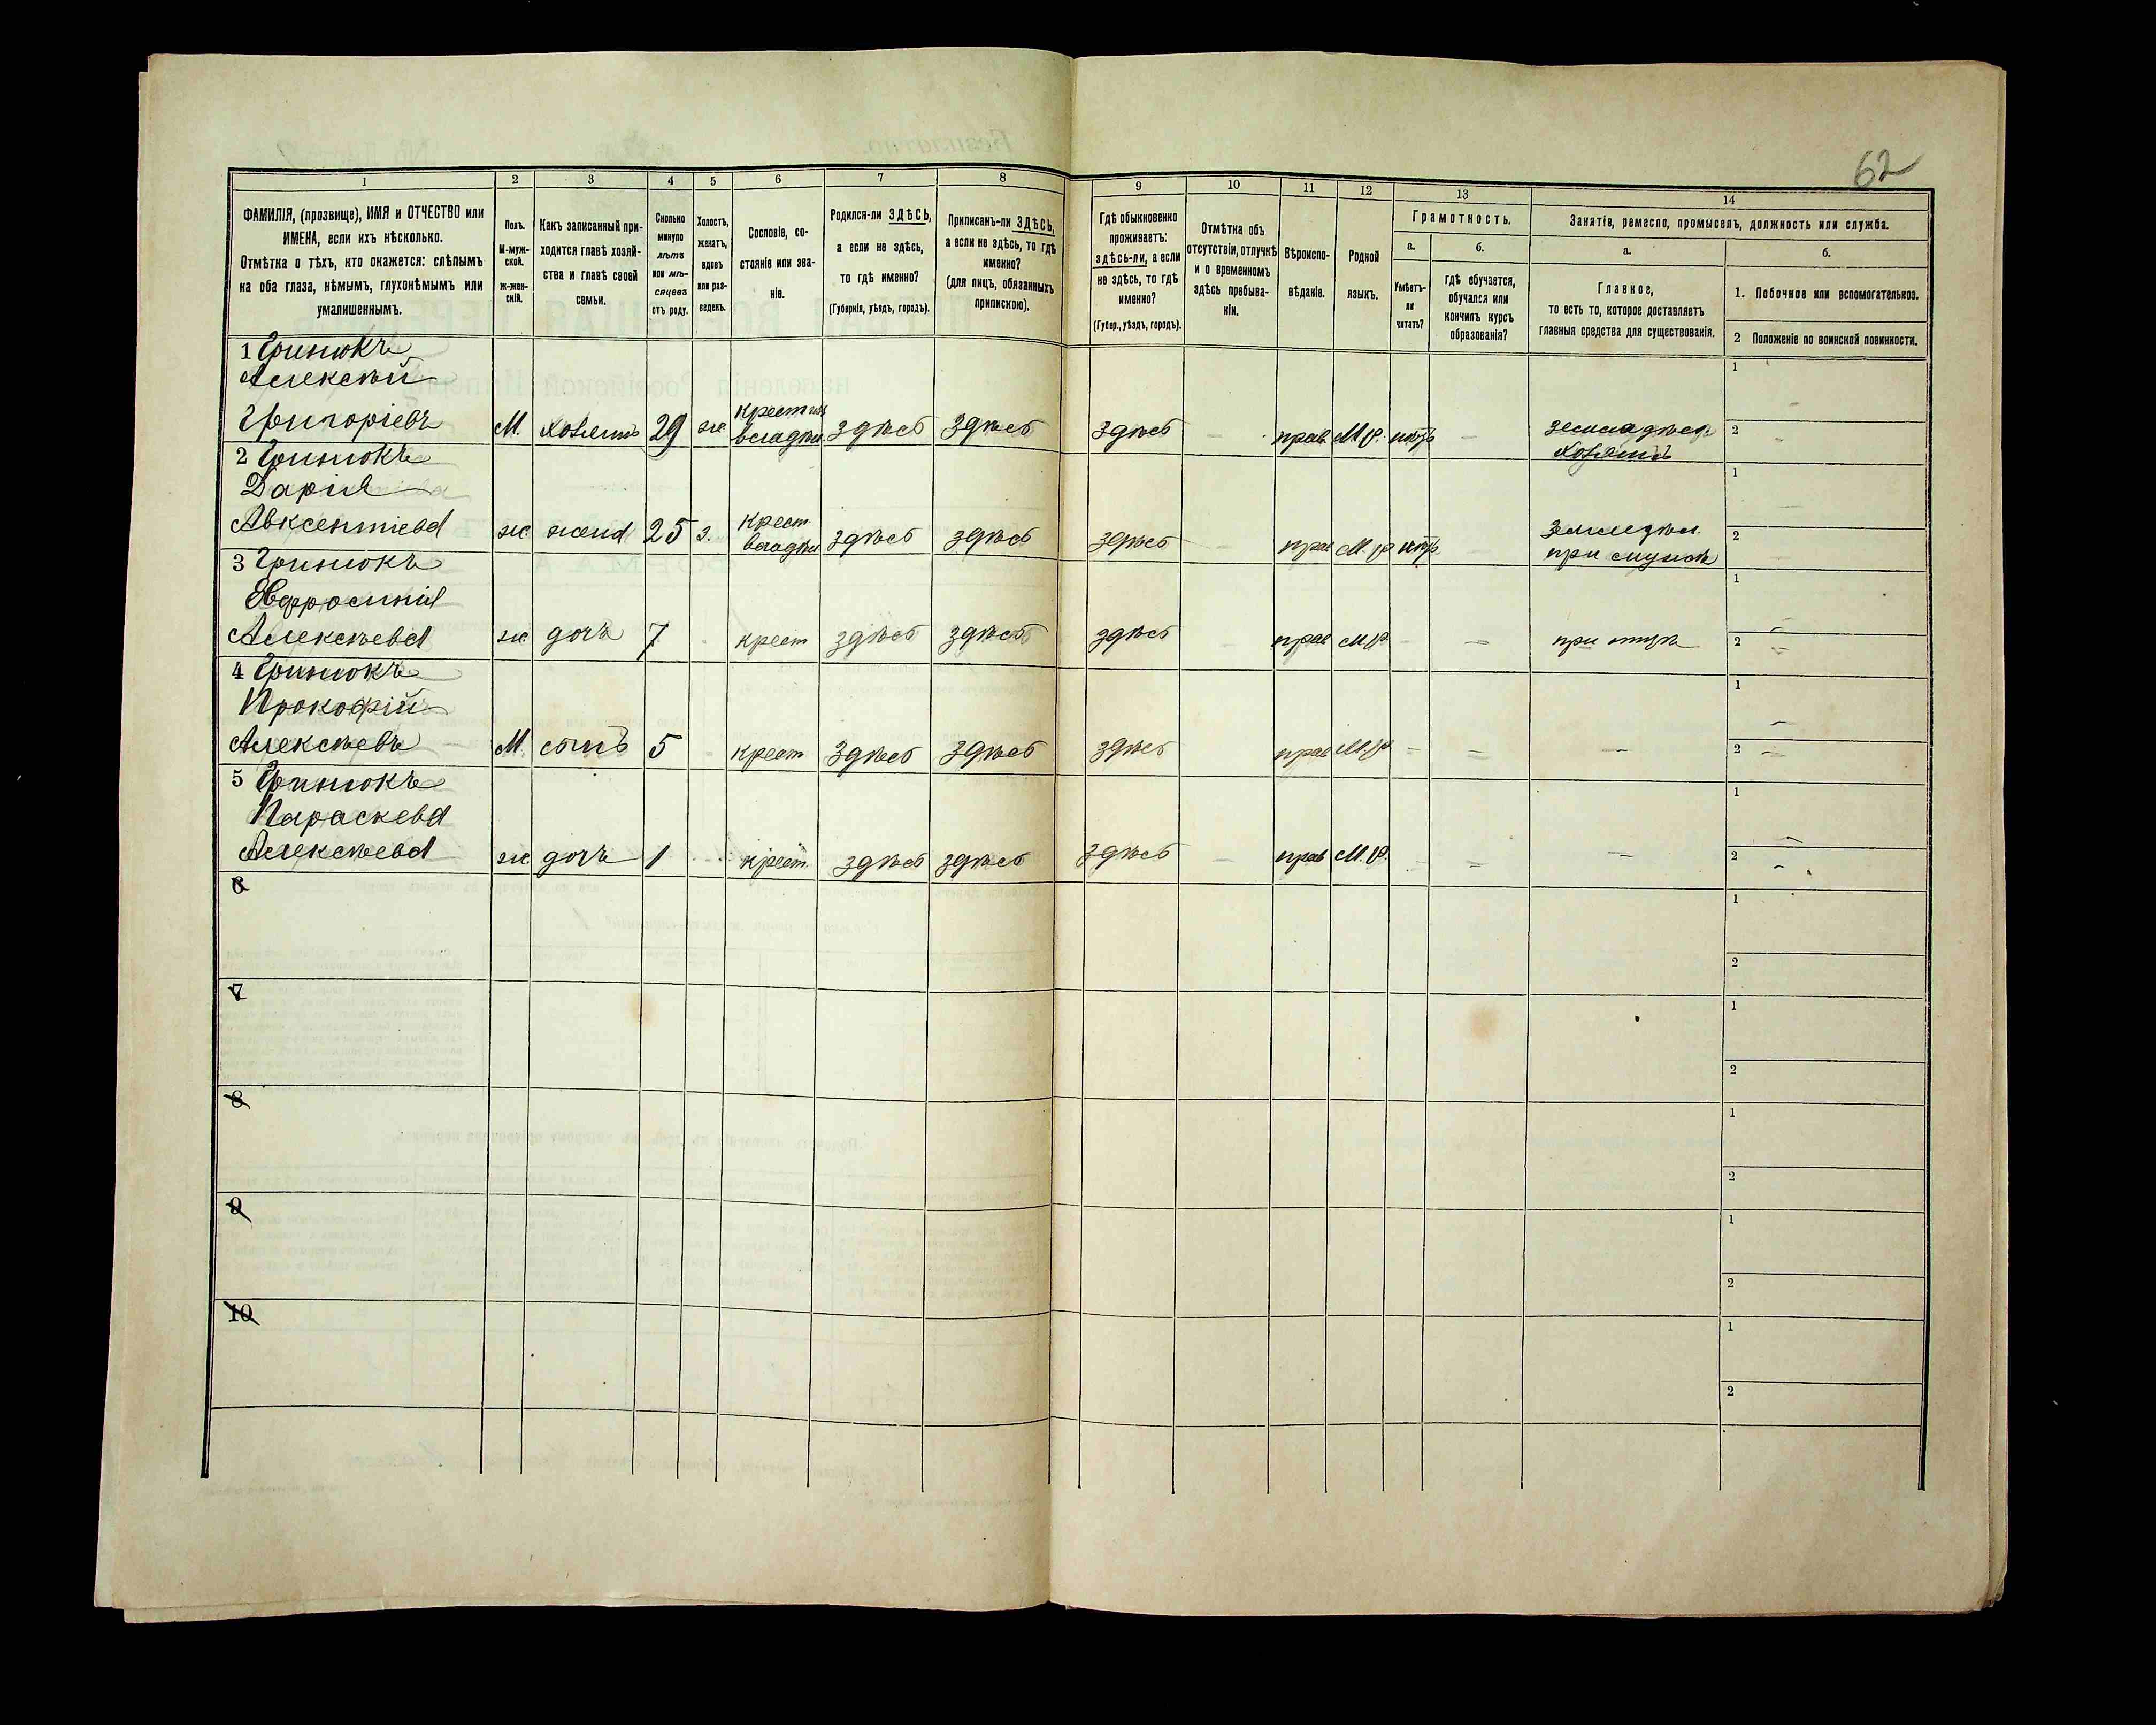 62
1 2 3 4 5 6 7 8 9 10 11 12 13 14
ФАМИЛІЯ, (прозвище), ИМЯ и ОТЧЕСТВО или
ИМЕНА, если ихъ нѣсколько.
Отмѣтка о тѣхъ, кто окажется: слѣпымъ
на оба глаза, нѣмымъ, глухонѣмымъ или
умалишеннымъ.
Полъ.
М-муж-
ской.
ж-жен-
скій.
Какъ записанный при-
ходится главѣ хозяй-
ства и главѣ своей
семьи.
Сколько
минуло
лѣтъ
или мѣ-
сяцевъ
отъ роду.
Холостъ,
женатъ,
вдовъ
или раз-
веденъ.
Сословіе, со-
стояніе или зва-
ніе.
Родился-ли ЗДѢСЬ,
а если не здѣсь,
то гдѣ именно?
(Губернія, уѣздъ, городъ).
Приписанъ-ли ЗДѢСЬ,
а если не здѣсь, то гдѣ
именно?
(для лицъ, обязанныхъ
припискою).
Гдѣ обыкновенно
проживаетъ:
здѣсь-ли, а если
не здѣсь, то гдѣ
именно?
(Губер., уѣздъ, городъ).
Отмѣтка объ
отсутствіи, отлучкѣ
и о временномъ
здѣсь пребыва-
ніи.
Вѣроиспо-
вѣданіе.
Родной
языкъ.
Грамотность.
а.
Умѣетъ-
ли
читать?
б.
Гдѣ обучается,
обучался или
кончилъ курсъ
образованія?
Занятіе, ремесло, промыселъ, должность или служба.
а.
Главное,
то есть то, которое доставляетъ
главныя средства для существованія.
б.
1. Побочное или вспомогательное.
2 Положеніе по воинской повинности.
1 Гринюкъ
Алексѣй
Григорiевъ М. хозяинъ 29 ж крест изъ владѣл здѣсь здѣсь здѣсь - прав М.р. нѣтъ - земледѣл хозяинъ 1 - 2 -
2 Гринюкъ
Дария
Авксентiева ж жена 25 з. крест владѣл здѣсь здѣсь здѣсь - прав М.р нѣтъ - земледѣл. при мужѣ 1 - 2 -
3 Гринюкъ
Евфросинiя
Алексѣева ж дочь 7 - крест здѣсь здѣсь здѣсь - прав М.р - - при отцѣ 1 - 2 -
4 Гринюкъ
Прокофiй
Алексѣевъ М. сынъ 5 - крест здѣсь здѣсь здѣсь прав М.р - - - 1 - 2 -
5 Гринюкъ
Параскева
Алексѣева ж дочь 1 - крест. здѣсь здѣсь здѣсь - прав М.р. - - - 1 - 2 -
6 1
2
7 1
2
8 1
2
9 1
2
10 1
2